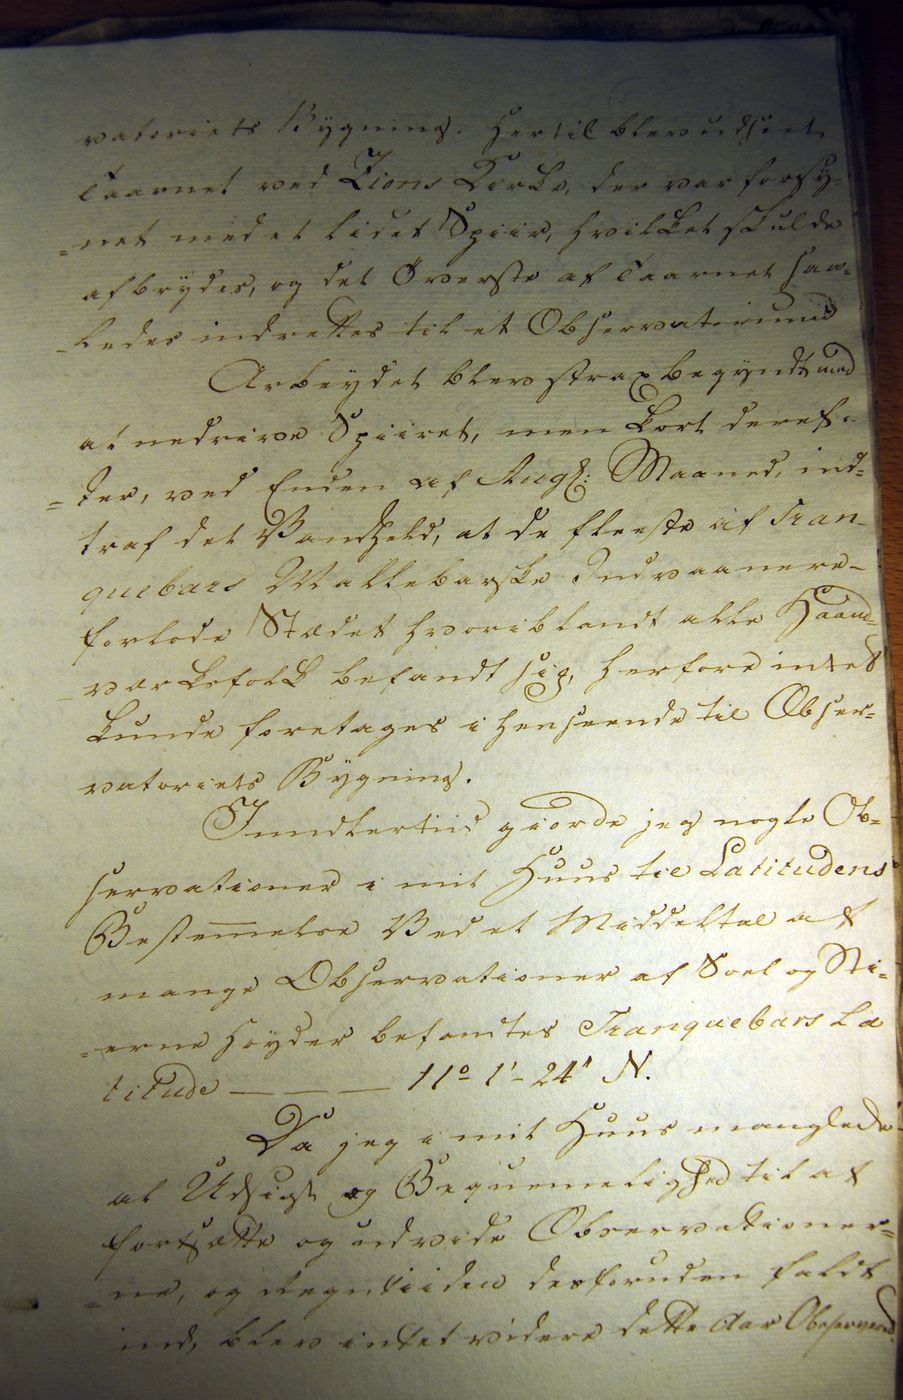 vatoriets Bygning. Hertil blev udseet
Taarnet ved Zions Kirke, der var forsy-
=net med et lidet Spiir, hvilket skulde
afbrydes, og det Øverste af Taarnet saa-
-ledes indrettes til et Observatorium
Arbeydet blev strax begyndt med
at nedrive Spiiret, men kort deref-
=ter, ved Enden af Augs: Maaned, ind=
traf det Vanheld, at de fleeste af Tran-
quebars Mallebarske Indvaanere
forlode Stædet hvoriblandt alle Haand-
-værksfolk befandt sig, herfore intet
kunde foretages i henseende til Obser=
vatoriets Bygning.
Imidlertiid giorde jeg nogle Ob=
servationer i mit Huus til Latitudens
Bestemmelse Ved et Middeltal af
mange Observationer af Soel og Sti=
=erne Høyder befandtes Tranquebars La
titude — — — 11° 1' 24" N.
Da jeg i mit Huus manglede
al Udsigt og Beqvemmelighed til at
fortsætte og udvide Observationer=
=ne, og Regntiiden desforuden faldt
ind, blev intet videre dette Aar Observered.